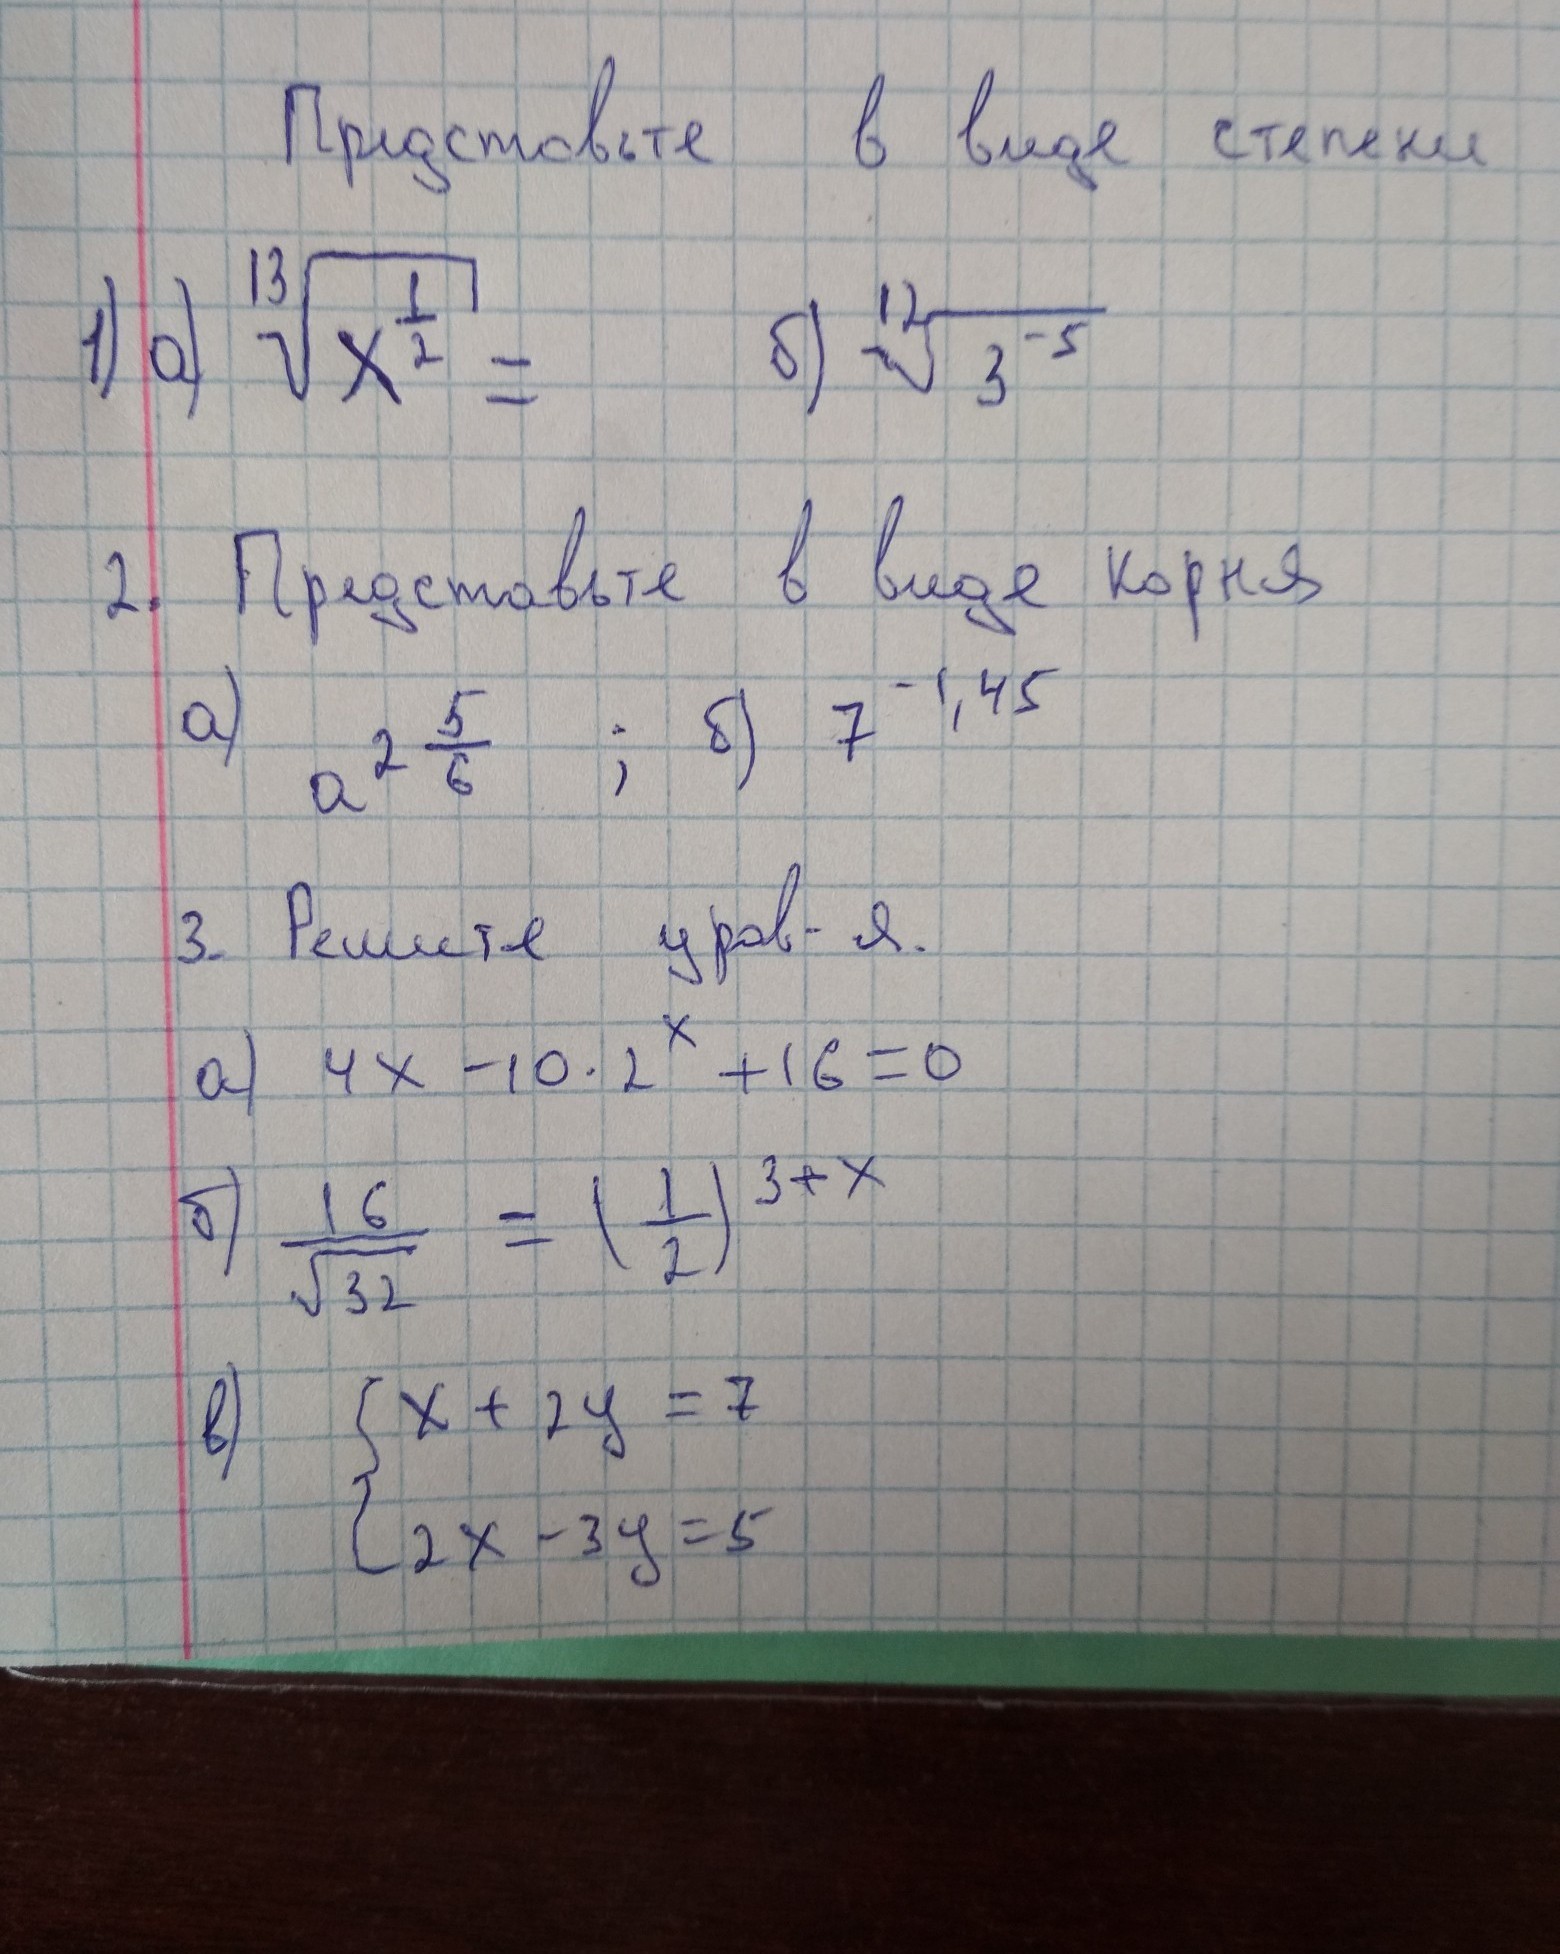 Представьте в виде степени
1) а) ¹³√(x^(1/2)) = б) ¹²√(3^(-5))
2. Представьте в виде корня
а) a^(2 5/6) ; б) 7^(-1,45)
3. Решите урав-я.
а) 4x - 10 · 2^x + 16 = 0
б) 16/√32 = (1/2)^(3+x)
в) { x + 2y = 7
2x - 3y = 5